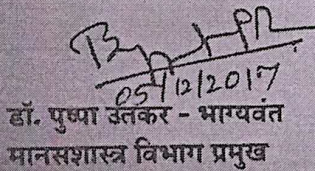 05/12/2017
डॉ. पुष्पा उतकर - भाग्यवंत
मानसशास्त्र विभाग प्रमुख